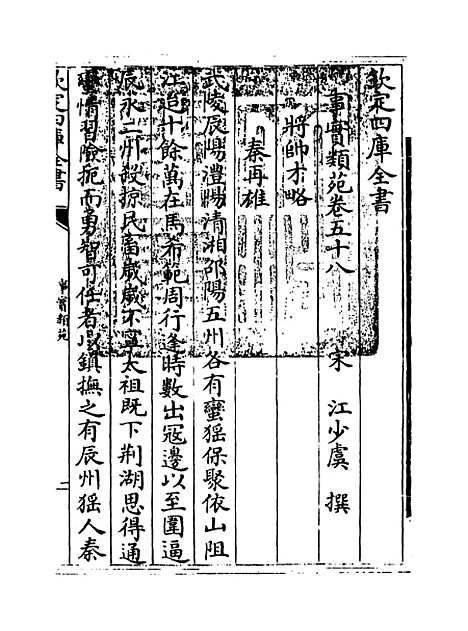 欽定四庫全書
事實類苑卷五十八
宋 江少虞 撰
將帥才略
秦再雄
武陵辰陽澧陽清湘邵陽五州各有蠻猺保聚依山阻
江殆十餘萬在馬希範周行逢時數出寇邊以至圍逼
辰永二州殺掠民畜歲歲不寧太祖既下荆湖思得通
蠻情習險扼而勇智可任者以鎮撫之有辰州猺人秦
欽定四庫全書
事實類苑